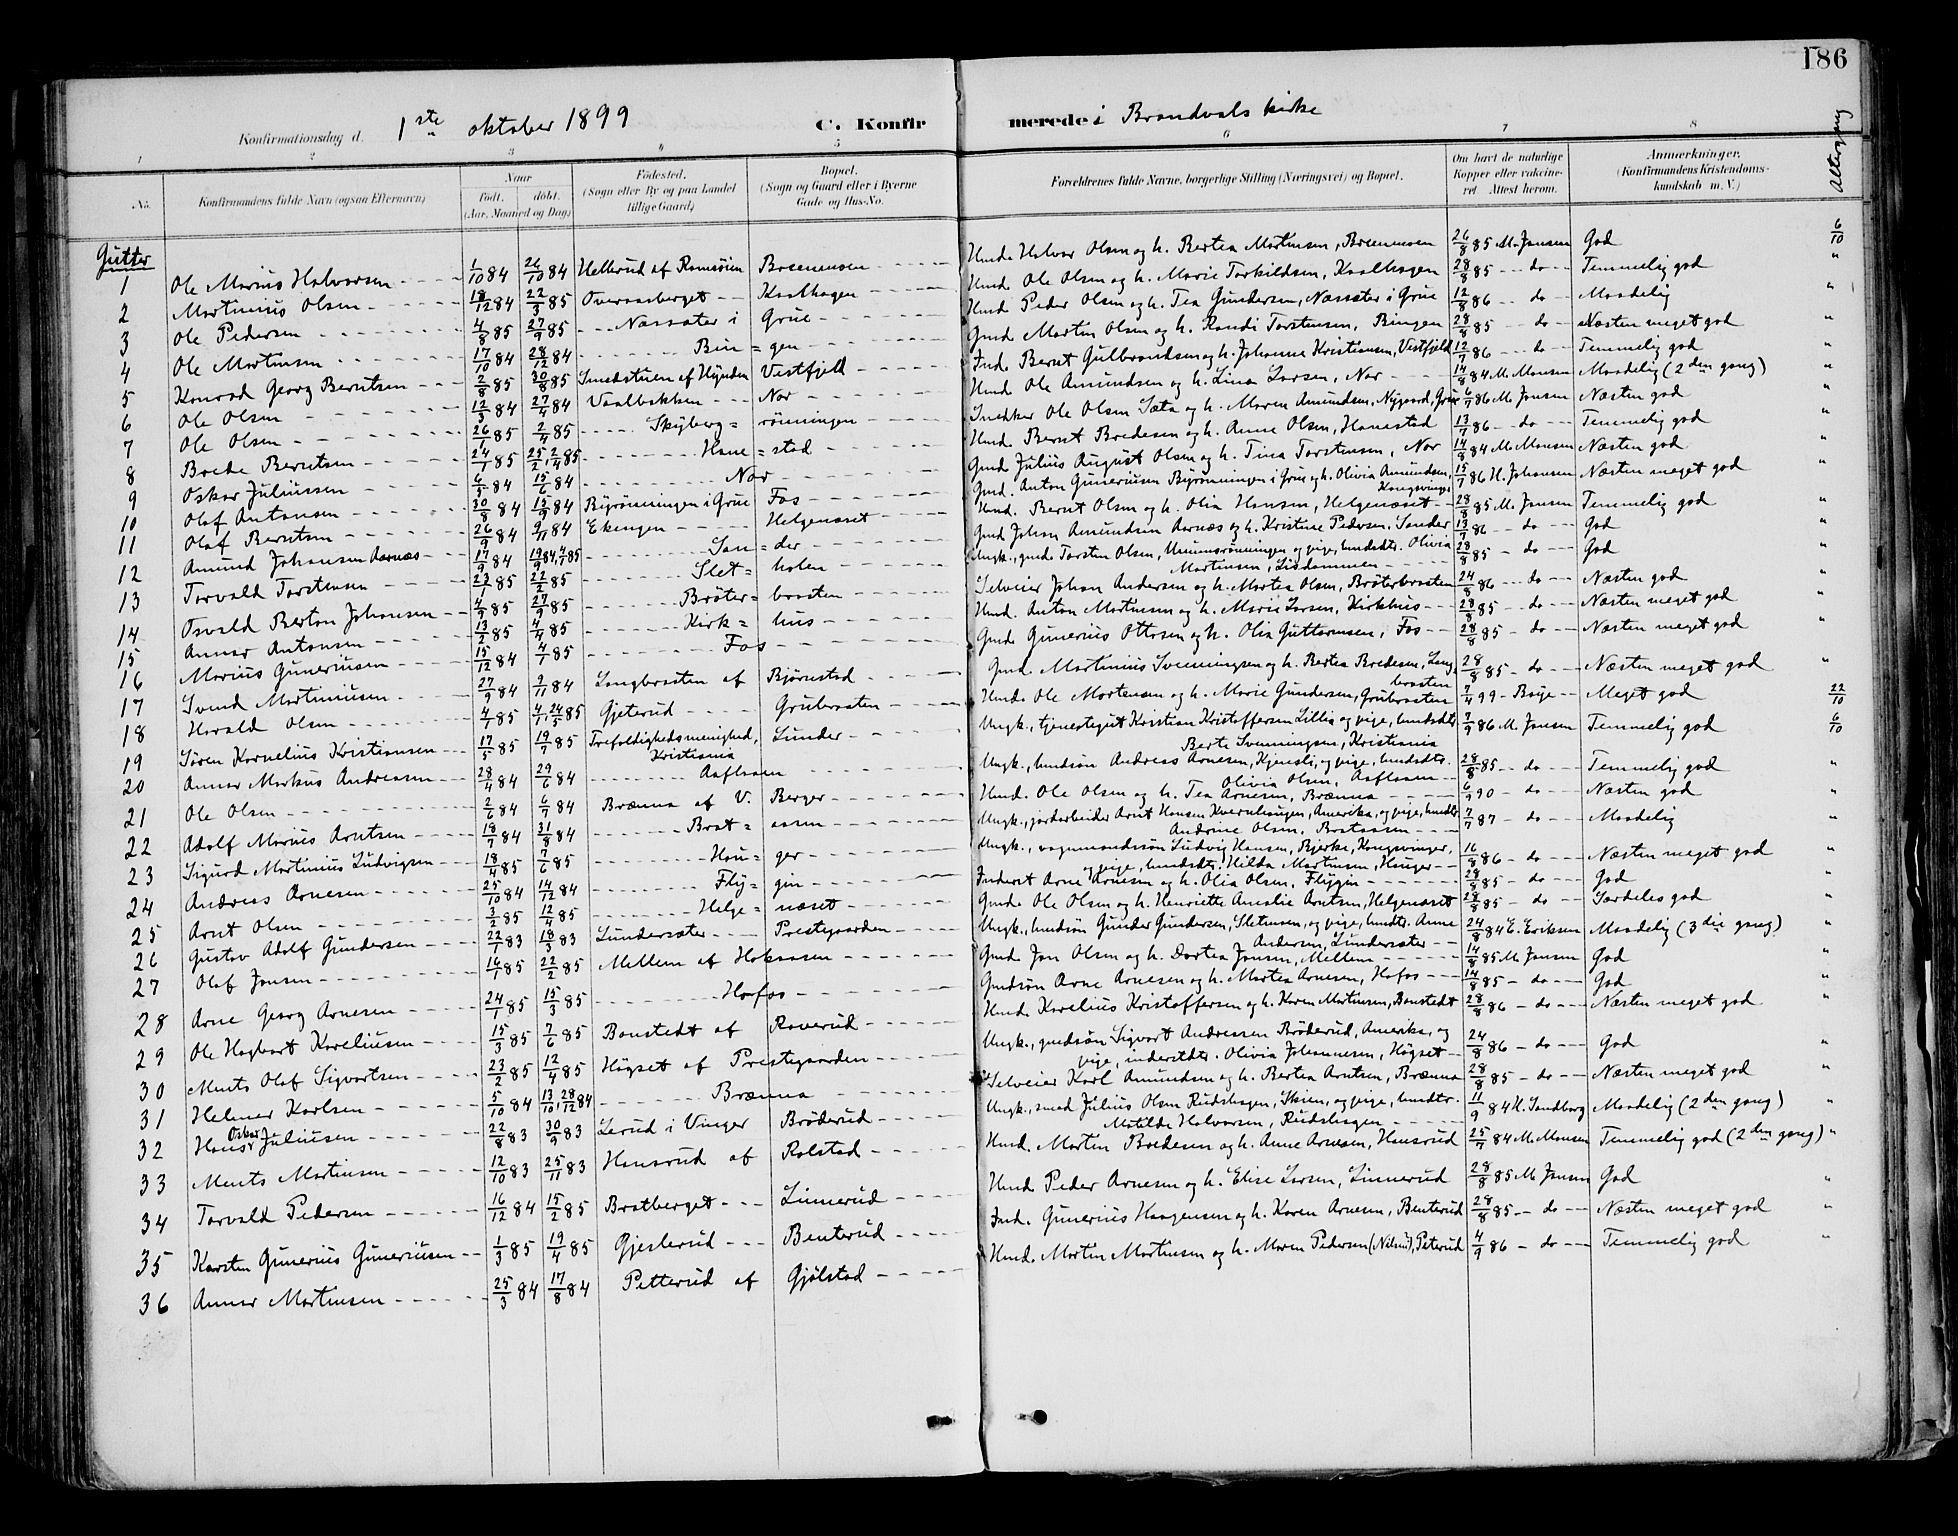 186
Konfirmationsdag d. 1ste oktober 1899 C. Konfirmerede i Brandvals kirke
Altergang
1 2 3 4 5 6 7 8
No. Konfirmandens fulde Navn (ogsaa Efternavn) Naar født. døbt. (Aar, Maaned og Dag) Fødested. (Sogn eller By og paa Landet tillige Gaard) Bopæl. (Sogn og Gaard eller i Byerne Gade og Hus-No. Forældrenes fulde Navne, borgerlige Stilling (Næringsvei) og Bopæl. Om havt de naturlige Kopper eller vakcineret. Attest herom. Anmærkninger. (Konfirmandens Kristendomskundskab m. V.)
Gutter
1 Ole Marius Halvorsen 1/10 84 26/10 84 Hellerud af Ramsøien Brænmoen Husmd. Halvor Olsen og h. Bertea Martinsen, Brænmoen 26/8 85 M. Jansen God 6/10
2 Martinius Olsen 18/12 84 22/3 85 Overaasberget Kaalhagen Husmd. Ole Olsen og h. Marie Torkildsen, Kaalhagen 28/8 85 do Temmelig god "
3 Ole Pedersen 4/8 85 27/9 85 Næssæter i Grue Husmd. Peder Olsen og h. Tea Gundersen, Næssæter i Grue 12/8 86 do Maadelig "
4 Ole Martinsen 17/10 84 28/12 84 Bin = gen Gmd. Martin Olsen og h. Randi Torstensen, Bingen 28/8 85 do Næsten meget god "
5 Konrad Georg Berntsen 2/8 85 30/8 85 Smedstuen af Hynden Vestfjeld Ind. Bernt Gulbrandsen og h. Johanne Kristiansen, Vestfjeld 12/7 86 do Temmelig god "
6 Ole Olsen 12/3 84 27/4 84 Vaalbakken Nor Husmd. Ole Amundsen og h. Lina Larsen, Nor 14/8 84 M. Monsen Maadelig (2den gang) "
7 Ole Olsen 26/1 85 2/4 85 Skyberg = rønningen Snedker Ole Olsen Sæta og h. Maren Amundsen, Nygaard, Grue 6/7 86 M. Jansen Næsten god "
8 Brede Berntsen 24/1 85 25/2, 2/4 85 Hane = stad Husmd. Bernt Bredesen og h. Anne Olsen, Hanestad 13/7 86 do Temmelig god "
9 Oskar Juliussen 6/5 84 15/6 84 Nor Gmd. Julius August Olsen og h. Tina Torstensen, Nor 14/8 84 M. Monsen Næsten god "
10 Olaf Antonsen 30/8 84 12/9 84 Byrønningen i Grue Fos Gmd. Anton Gunerius­en Byrønningen i Grue og h. Olivia Amundsen, Kongsvinger 15/7 86 H. Johansen Næsten meget god "
11 Olaf Berntsen 26/9 84 9/11 84 Ekengen Helgenæset Husmd. Bernt Olsen og h. Olia Hansen, Helgenæset 28/8 85 M. Jansen Temmelig god "
12 Amund Johansen Aarnæs 17/9 84 19/9 84, 4/1 85 San = der Gmd. Johan Amundsen Aarnæs og h. Kristine Pedersen, Sander 13/7 86 do God "
13 Torvald Torstensen 23/1 85 22/2 85 Slet = holen Ungk., gmds. Torsten Olsen, og pige, husmdsdtr. Olivia Martinsen, 28/8 85 do God "
14 Osvald Berton Johansen 4/9 85 27/9 85 Bråter = braaten Selveier Johan Andersen og h. Martea Olsen, Bråterbraaten 24/8 86 do Næsten god "
15 Annar Antonsen 13/2 85 4/4 85 Kirk = hus Husmd. Anton Martinsen og h. Marie Larsen, Kirkhus 28/8 85 do Næsten meget god "
16 Marius Guneriusen 15/12 84 4/1 85 Fos Gmd. Gunerius Ottosen og h. Olia Guttormsen, Fos 28/8 85 do Næsten meget god "
17 Svend Martiniusen 27/9 84 9/11 84 Langbraaten af Bjørnstad Gmd. Martinius Svenningsen og h. Bertea Bredesen, Langbraaten 28/8 85 do Næsten meget god "
18 Harald Olsen 4/1 85 4/1, 24/5 85 Gjeterud Grubraaten Husmd. Ole Mortensen og h. Marie Gundersen, Grubraaten 7/4 99 Boye Meget god 22/10
19 Søren Kornelius Kristiansen 17/5 85 19/7 85 Trefoldighedsmenighed, Kristiania Lunder Ungk., tjenestegut Kristian Kristoffersen Lillia og pige, husmdsdtr. Berte Svenningsen, Kristiania 7/9 86 M. Jansen Temmelig god 6/10
20 Annar Markus Andreasen 28/4 84 29/6 84 Aaflaaen Ungk., husmdsøn Andreas Arnesen, Kjensli, og pige, husmdsdtr. Olivia Olsen, Aaflaaen 28/8 85 do Temmelig god "
21 Ole Olsen 2/6 84 6/7 84 Brænna af V. Berger Husmd. Ole Olsen og h. Tea Arnesen, Brænna 6/9 90 do Næsten god "
22 Adolf Marius Arntsen 18/7 84 31/8 84 Brat = aasen Ungk., jordarbeider Arnt Hansen Kvernhaugen, Amerika, og pige, husmdsdtr. Andrine Olsen, Brataasen 7/7 87 do Maadelig "
23 Sigurd Martinius Ludvigsen 18/4 85 7/6 85 Hau = ger Ungk., vognmandssøn Ludvig Hansen, Bjerke, Kongsvinger, og pige, husmdsdtr. Hilda Martinsen, Hauger 16/8 86 do Næsten meget god "
24 Andreas Arnesen 25/10 84 14/12 84 Fly = gin Inderst Arne Arnesen og h. Olia Olsen, Flygin 28/8 85 do God "
25 Arnt Olsen 3/2 85 12/4 85 Helge = næset Gmd. Ole Olsen og h. Henriette Amalie Arntsen, Helgenæset 28/8 85 do Særdeles god "
26 Gustav Adolf Gundersen 22/1 83 18/3 83 Lundersæter Prestegaarden Ungk., husmdsøn Gunder Gundersen, Sletmoen, og pige, husmdsdtr. Anne Andersen, Lundersæter 24/8 84 E. Eriksen Maadelig (3die gang) "
27 Olaf Jonsen 16/1 85 22/2 85 Mellem af Hokaasen Gmd. Jon Olsen og h. Dortea Jonsen, Mellem 14/8 85 M. Jansen God "
28 Arne Georg Arnesen 24/1 85 15/3 85 Hofos Gmdsøn Arne Arnesen og h. Martea Arnesen, Hofos 14/8 85 do God "
29 Ole Hagbart Koreliusen 15/3 85 7/6 85 Bonstedt af Roverud Husmd. Korelius Kristoffersen og h. Karen Martinsen, Bonstedt 28/8 86 do Næsten meget god "
30 Ments Olaf Sigvartsen 23/2 85 12/4 85 Høgset af Prestegaarden Ungk., gmdsøn Sigvart Andreassen Brøderud, Amerika, og pige, inderstdtr. Olivia Johannesen, Høgset 24/8 86 do God "
31 Helmer Karlsen 5/10 84 13/10, 28/12 84 Brænna Selveier Karl Amundsen og h. Bertea Arntsen, Brænna 28/8 85 do Næsten meget god "
32 Hans Oskar Juliusen 22/8 83 30/9 83 Lerud i Vinger Brøderud Ungk., smed Julius Olsen Rudshagen, Skien, og pige, husmdsdtr. Matilde Halvorsen, Rudshagen 11/9 84 H. Sandborg Maadelig (2den gang) "
33 Ments Martinsen 12/10 83 25/11 83 Hansrud af Rolstad Husmd. Martin Bredesen og h. Anne Arnesen, Hansrud 25/7 84 M. Monsen Temmelig god (2den gang) "
34 Torvald Pedersen 16/12 84 15/2 85 Bratberget Linnerud Husmd. Peder Arnesen og h. Elise Larsen, Linnerud 28/8 85 M. Jansen God "
35 Karsten Gunerius Guneriusen 1/3 85 19/4 85 Gjeslerud Benterud Ind. Gunerius Haagensen og h. Karen Arnesen, Benterud 28/8 85 do Næsten meget god "
36 Annar Martinsen 25/3 84 17/8 84 Petterud af Gjølstad Husmd. Martin Martinsen og h. Maren Pedersen (Nilsen), Peterud 4/9 86 do Temmelig god "